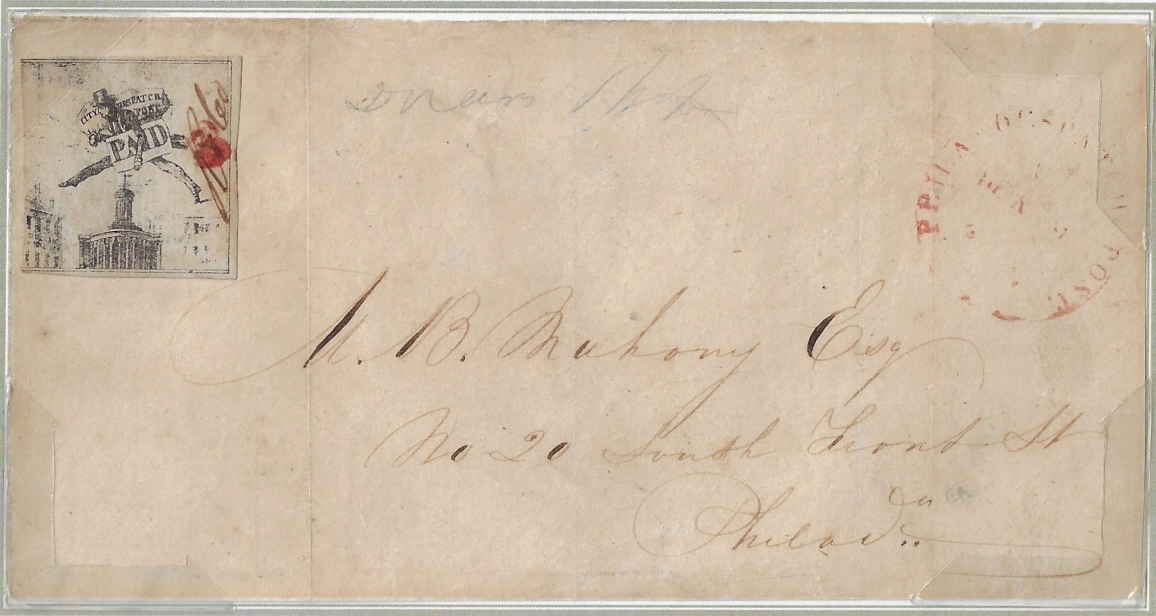 CITY DESPATCH
POST
PAID
PHILA DESPATCH POST
M. B. Mahony Esq
No 20 South Front St
Philad.a